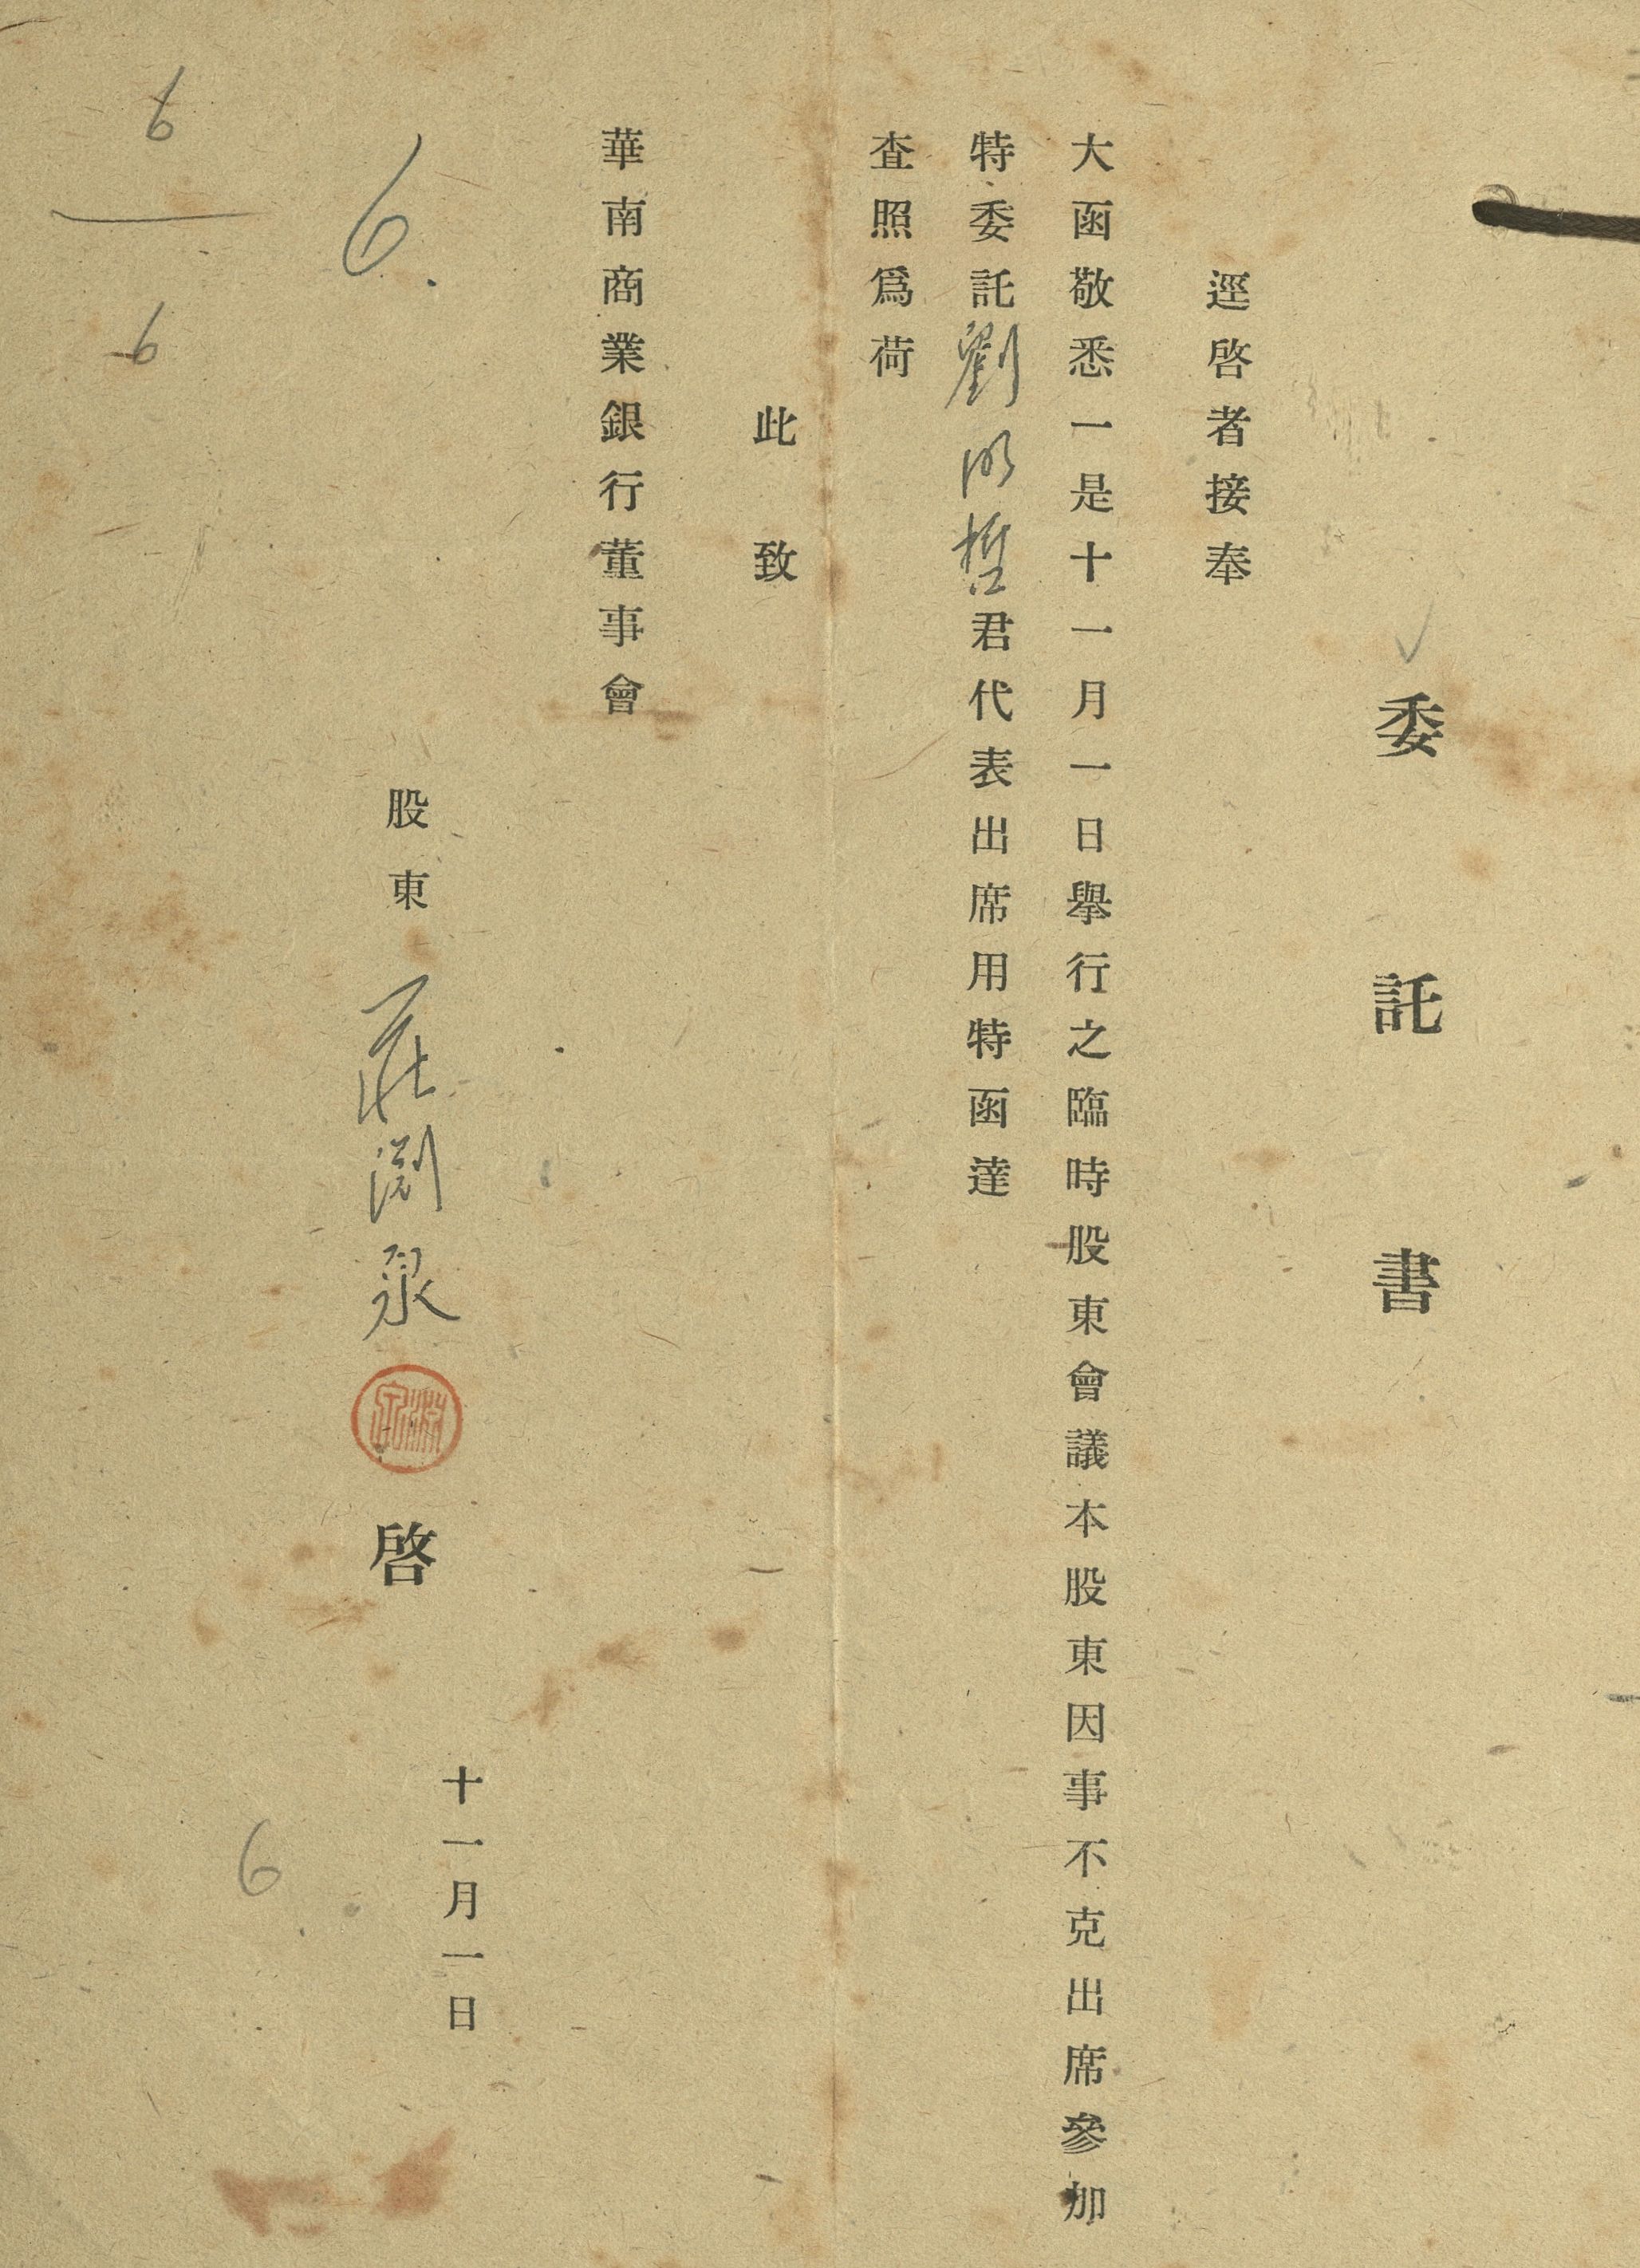 委託書
逕啓者接奉
大函敬悉一是十一月一日擧行之臨時股東會議本股東因事不克出席參加
特委託劉明哲君代表出席用特函達
査照爲荷
此致
華南商業銀行董事會
十一月一日
股東 莊渕泉 啓
6.
6
6
6